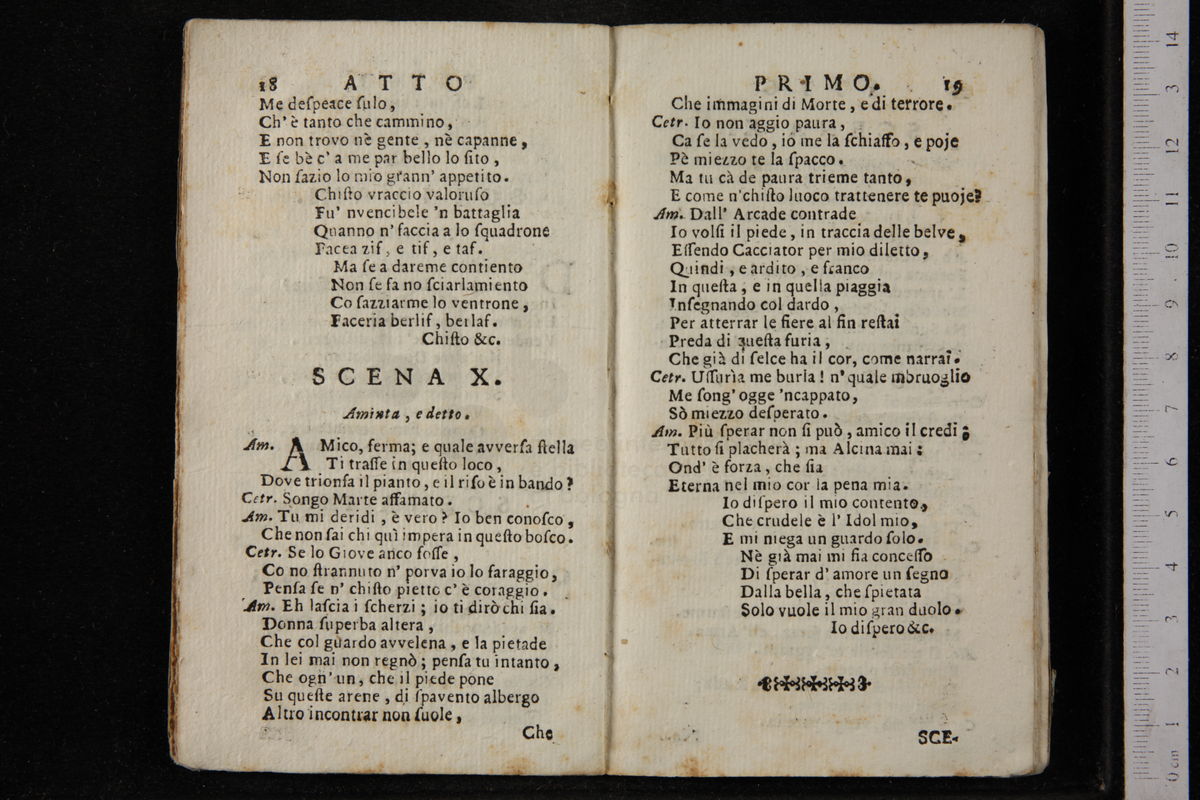 18 ATTO
Me deſpeace ſulo,
Ch' è tanto che cammino,
E non trovo nè gente, nè capanne,
E ſe bè c' a me par bello lo ſito,
Non ſazio lo mio grann' appetito.
Chiſto vraccio valoruſo
Fu' nvencibele 'n battaglia
Quanno n' faccia a lo ſquadrone
Facea zif, e tif, e taf.
Ma ſe a dareme contiento
Non ſe fa no ſciarlamiento
Co ſazziarme lo ventrone,
Faceria berlif, berlaf.
Chiſto &c.
SCENA X.
Aminta, e detto.
Am. AMico, ferma; e quale avverſa ſtella
Ti traſſe in queſto loco,
Dove trionfa il pianto, e il riſo è in bando?
Cetr. Songo Marte affamato.
Am. Tu mi deridi, è vero? Io ben conoſco,
Che non ſai chi quì impera in queſto boſco.
Cetr. Se lo Giove anco foſſe,
Co no ſtrannuto n' porva io lo faraggio,
Penſa ſe n' chiſto pietto c' è coraggio.
Am. Eh laſcia i ſcherzi; io ti dirò chi ſia.
Donna ſuperba altera,
Che col guardo avvelena, e la pietade
In lei mai non regnò; penſa tu intanto,
Che ogn' un, che il piede pone
Su queſte arene, di ſpavento albergo
Altro incontrar non ſuole,
Che
PRIMO. 19
Che immagini di Morte, e di terrore.
Cetr. Io non aggio paura,
Ca ſe la vedo, io me la ſchiaffo, e poje
Pè miezzo te la ſpacco.
Ma tu cà de paura trieme tanto,
E come n' chiſto luoco trattenere te puoje?
Am. Dall' Arcade contrade
Io volſi il piede, in traccia delle belve,
Eſſendo Cacciator per mio diletto,
Quindi, e ardito, e franco
In queſta, e in quella piaggia
Inſegnando col dardo,
Per atterrar le fiere al fin reſtai
Preda di queſta furia,
Che già di ſelce ha il cor, come narrai.
Cetr. Uſſurìa me burla! n' quale mbruoglio
Me ſong' ogge 'ncappato,
Sò miezzo deſperato.
Am. Più ſperar non ſi può, amico il credi;
Tutto ſi placherà; ma Alcina mai:
Ond' è forza, che ſia
Eterna nel mio cor la pena mia.
Io diſpero il mio contento,
Che crudele è l' Idol mio,
E mi niega un guardo ſolo.
Nè già mai mi fia conceſſo
Di ſperar d' amore un ſegno
Dalla bella, che ſpietata
Solo vuole il mio gran duolo.
Io diſpero &c.
SCE-
14
3
12
11
10
9
8
7
6
5
4
3
2
1
0 cm